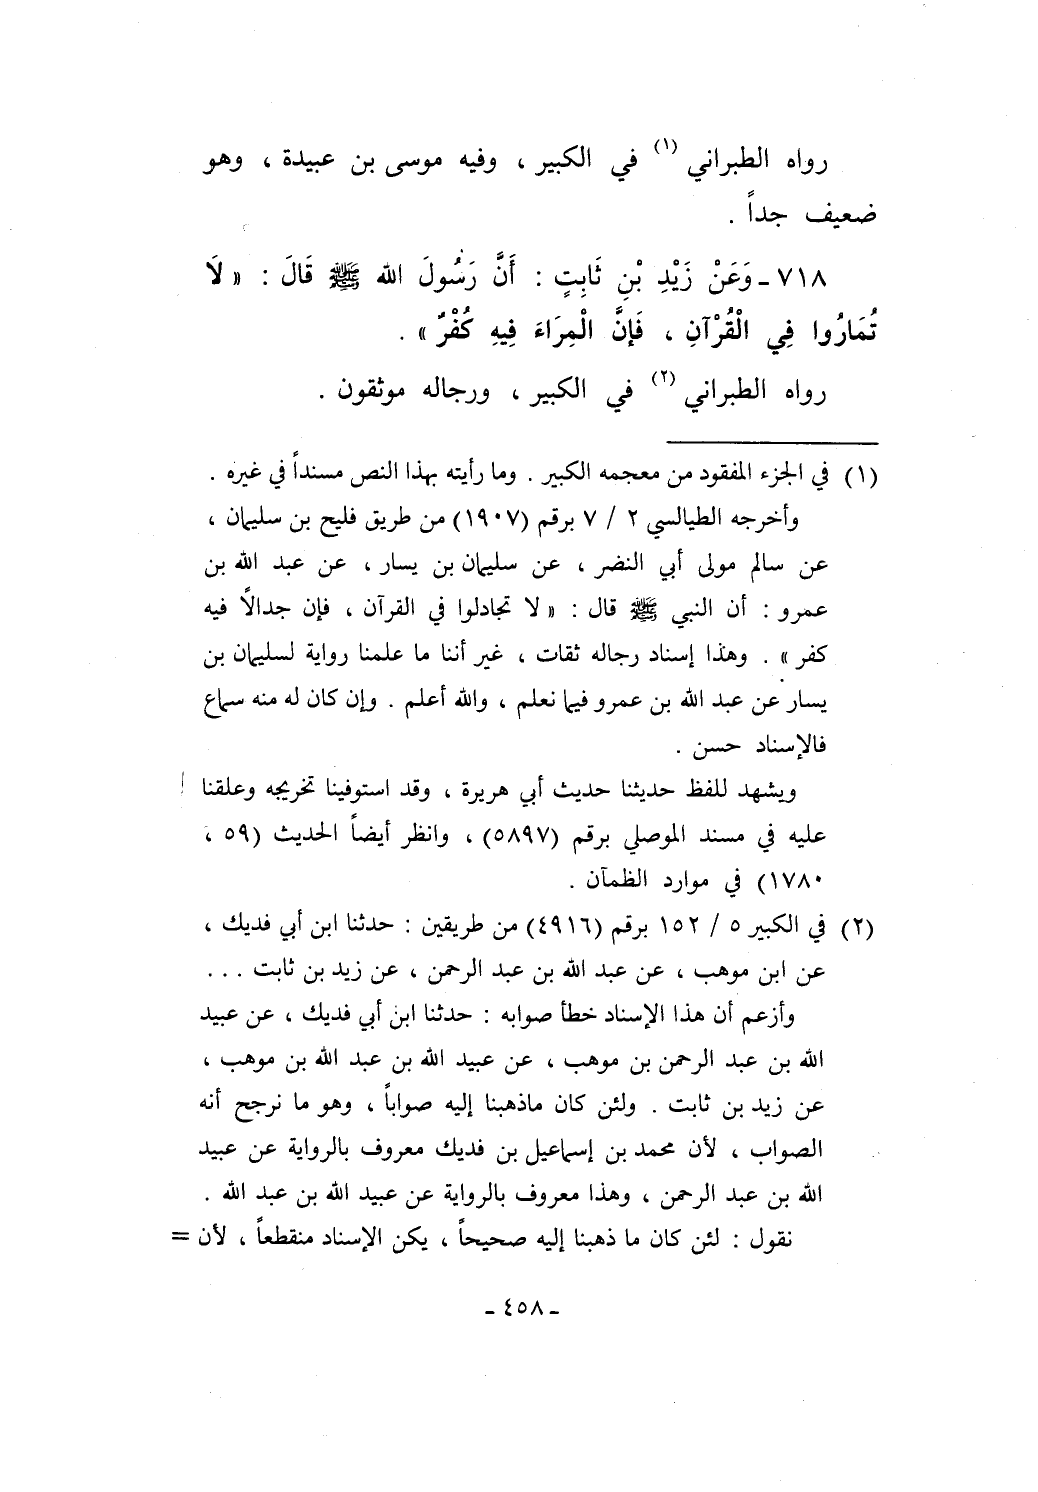 رواه الطبراني (١) في الكبير ، وفيه موسى بن عبيدة ، وهو
ضعيف جداً .
٧١٨ - وَعَنْ زَيْدِ بْنِ ثَابِتٍ : أَنَّ رَسُولَ الله ﷺ قَالَ : « لَا
تُمَارُوا فِي الْقُرْآنِ ، فَإِنَّ الْمِرَاءَ فِيهِ كُفْرٌ » .
رواه الطبراني (٢) في الكبير ، ورجاله موثقون .
(١) في الجزء المفقود من معجمه الكبير . وما رأيته بهذا النص مسنداً في غيره .
وأخرجه الطيالسي ٢ / ٧ برقم (١٩٠٧) من طريق فليح بن سليمان ،
عن سالم مولى أبي النضر ، عن سليمان بن يسار ، عن عبد الله بن
عمرو : أن النبي ﷺ قال : « لا تجادلوا في القرآن ، فإن جدالاً فيه
كفر » . وهذا إسناد رجاله ثقات ، غير أننا ما علمنا رواية لسليمان بن
يسار عن عبد الله بن عمرو فيما نعلم ، والله أعلم . وإن كان له منه سماع
فالإسناد حسن .
ويشهد للفظ حديثنا حديث أبي هريرة ، وقد استوفينا تخريجه وعلقنا
عليه في مسند الموصلي برقم (٥٨٩٧) ، وانظر أيضاً الحديث (٥٩ ،
١٧٨٠) في موارد الظمآن .
(٢) في الكبير ٥ / ١٥٢ برقم (٤٩١٦) من طريقين : حدثنا ابن أبي فديك ،
عن ابن موهب ، عن عبد الله بن عبد الرحمن ، عن زيد بن ثابت ...
وأزعم أن هذا الإسناد خطأ صوابه : حدثنا ابن أبي فديك ، عن عبيد
الله بن عبد الرحمن بن موهب ، عن عبيد الله بن عبد الله بن موهب ،
عن زيد بن ثابت . ولئن كان ماذهبنا إليه صواباً ، وهو ما نرجح أنه
الصواب ، لأن محمد بن إسماعيل بن فديك معروف بالرواية عن عبيد
الله بن عبد الرحمن ، وهذا معروف بالرواية عن عبيد الله بن عبد الله .
نقول : لئن كان ما ذهبنا إليه صحيحاً ، يكن الإسناد منقطعاً ، لأن =
- ٤٥٨ -